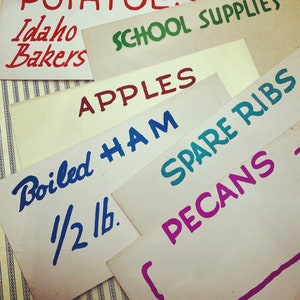 POTATOE
Idaho
Bakers
SCHOOL SUPPLIES
APPLES
Boiled HAM
1/2 lb.
SPARE RIBS
PECANS